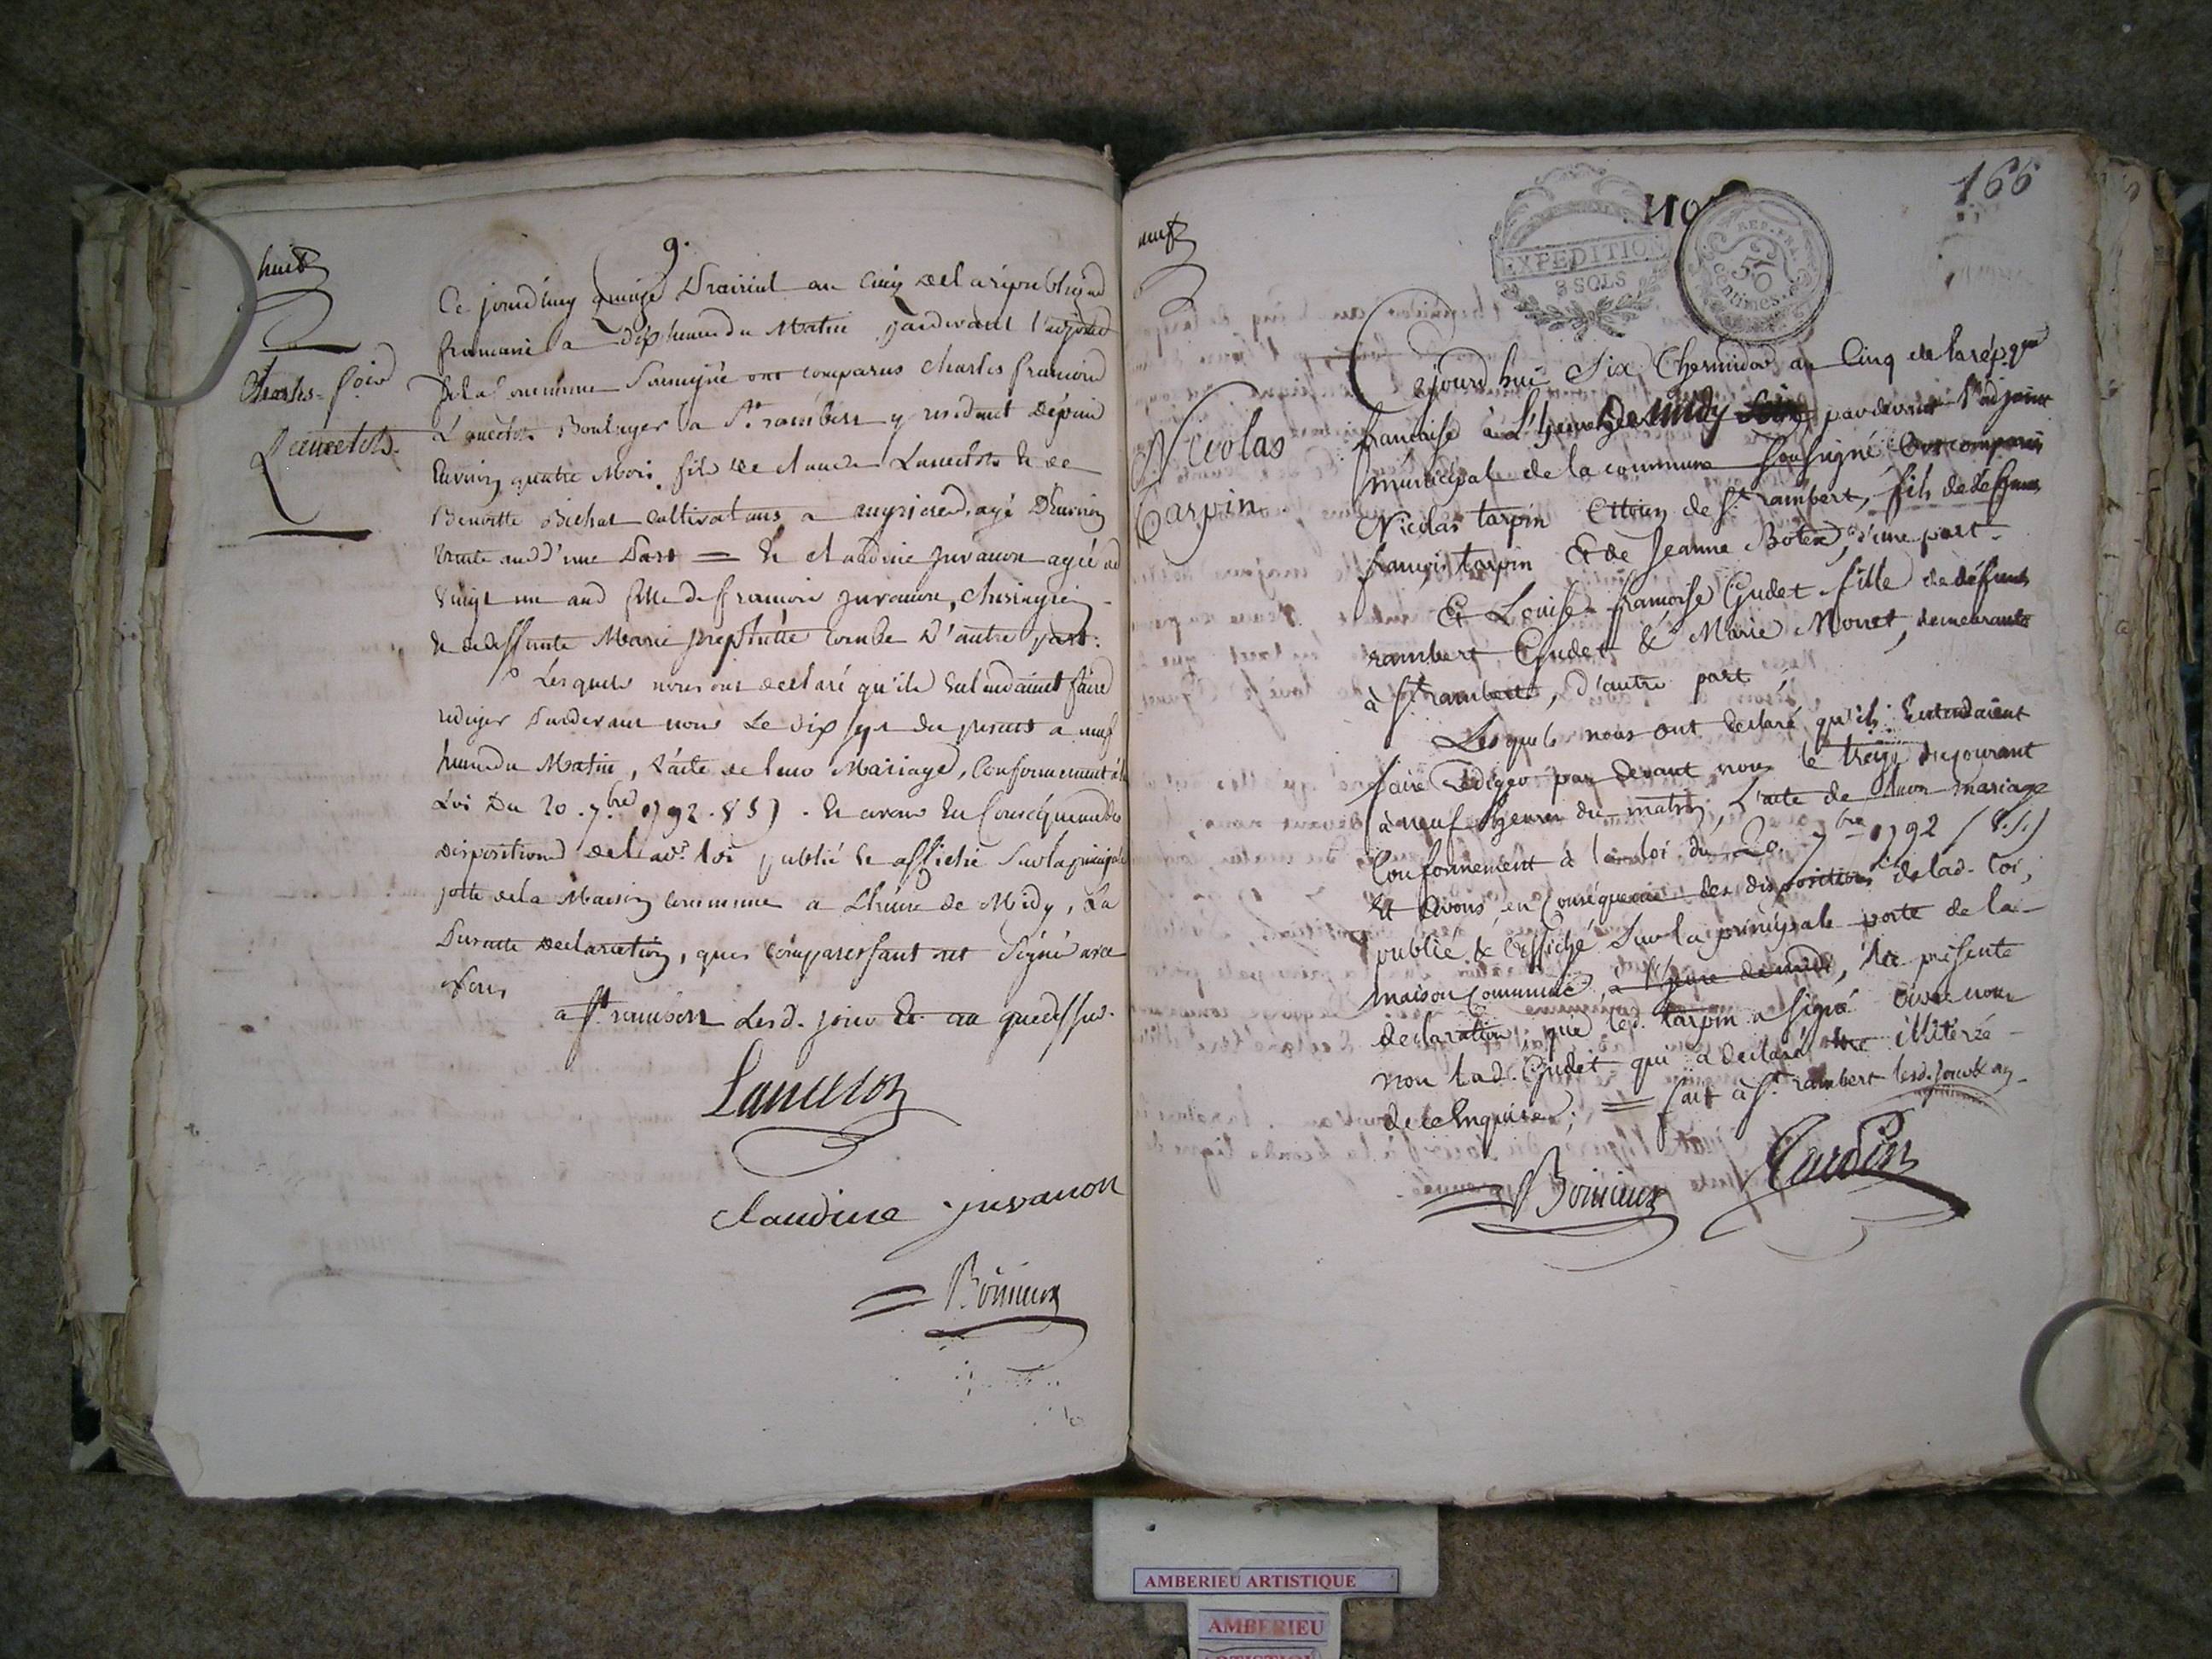 huit
9.
Charles f.ois
Lancelot
Ce jourd'huy quinze Prairial an cinq de la république
francaise a dix heures du Matin pardevant l'adjoint
de la Commune Soussigné ont comparus Charles francois
Lancelot Boulanger a St. rambert y residant depuis
Environ quatre Mois, fils de claude Lancelot et de
Benoitte Bichat cultivateurs a agé D'Environ
trente ans d'une Part = Et claudine Juvanon agée de
vingt un ans fille de francois Juvanon, Chirurgien
et de deffunte Marie combe D'autre part.
Lesquels nous ont declaré qu'ils Entendaient faire
rediger Pardevant nous Le dix sept du present a neuf
heures du Matin, l'acte de leur Mariage, Conformement à la
Loi Du 20. 7.bre 1792. V.S) . Et avons En Conséquence des
dispositions de lad. loi publié et affiché sur la principale
porte de la Maison commune a L'heure de Midy, La
Presente Declaration, que les comparessant ont Signé avec
Nous
a St. rambert Lesd. jour et an que dessus.
Lancelot
claudine juvanon
Bonieux
neuf
110
166
EXPEDITION
8 SOLS
REP. FRA.
50
centimes.
Nicolas
Tarpin
Cejourd'hui Six Thermidor an Cinq de la rép.que
francaise à L'heure de midy pardevant l'adjoint
municipal de la commune Soussigné Ont comparus
Nicolas tarpin Citoien de St. rambert, fils de défunt
françois tarpin Et de Jeanne Botex, d'une part.
Et Louise francoise Gudet fille de défunts
rambert Gudet & Marie Monet, demeurante
à St. rambert, d'autre part,
Lesquels nous ont declaré qu'ils Entendaient
faire Rédiger par devant nous le treize du courant
à neuf heures du matin, L'acte de leur mariage
Conformément à la loi du 20. 7bre 1792 (V.S.)
Et avons, en Conséquence des dispositions de lad. loi,
publié & affiché Sur la principale porte de la
maison Commune, à l'heure de midi, La présente
declaration, que led. tarpin a signé avec nous
non lad. Gudet qui a declaré être illitérée
de ce Enquise; = fait à St. rambert lesd. jour & an
Bonieux